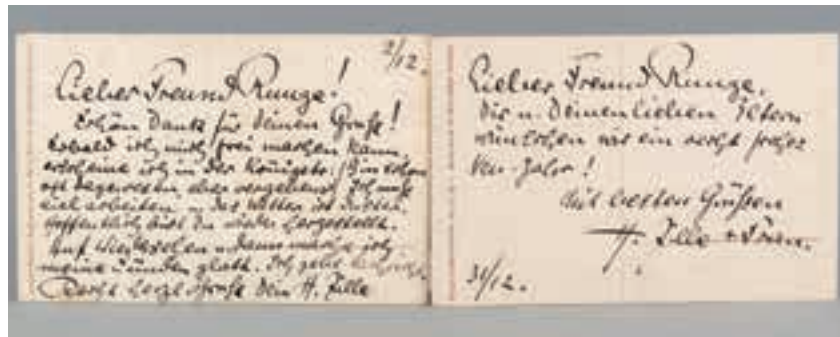 2/12.
Lieber Freund Runge!
Schön Dank für Deinen Gruß!
Sobald ich mich frei machen kann,
erscheine ich in der Königstr. / Bin schon
oft dagewesen aber vergebens / Ich muß
viel arbeiten u. das Wetter ist
Hoffentlich bist Du wieder hergestellt.
Auf Wiedersehen u. dann mache ich
meine Sünden glatt. Ich
Recht herzl. Grüße Dein H. Zille
Lieber Freund Runge,
Dir u. Deinen lieben Eltern
wünschen wir ein recht frohes
Neu-Jahr!
Mit besten Grüßen
H. Zille
31/12.